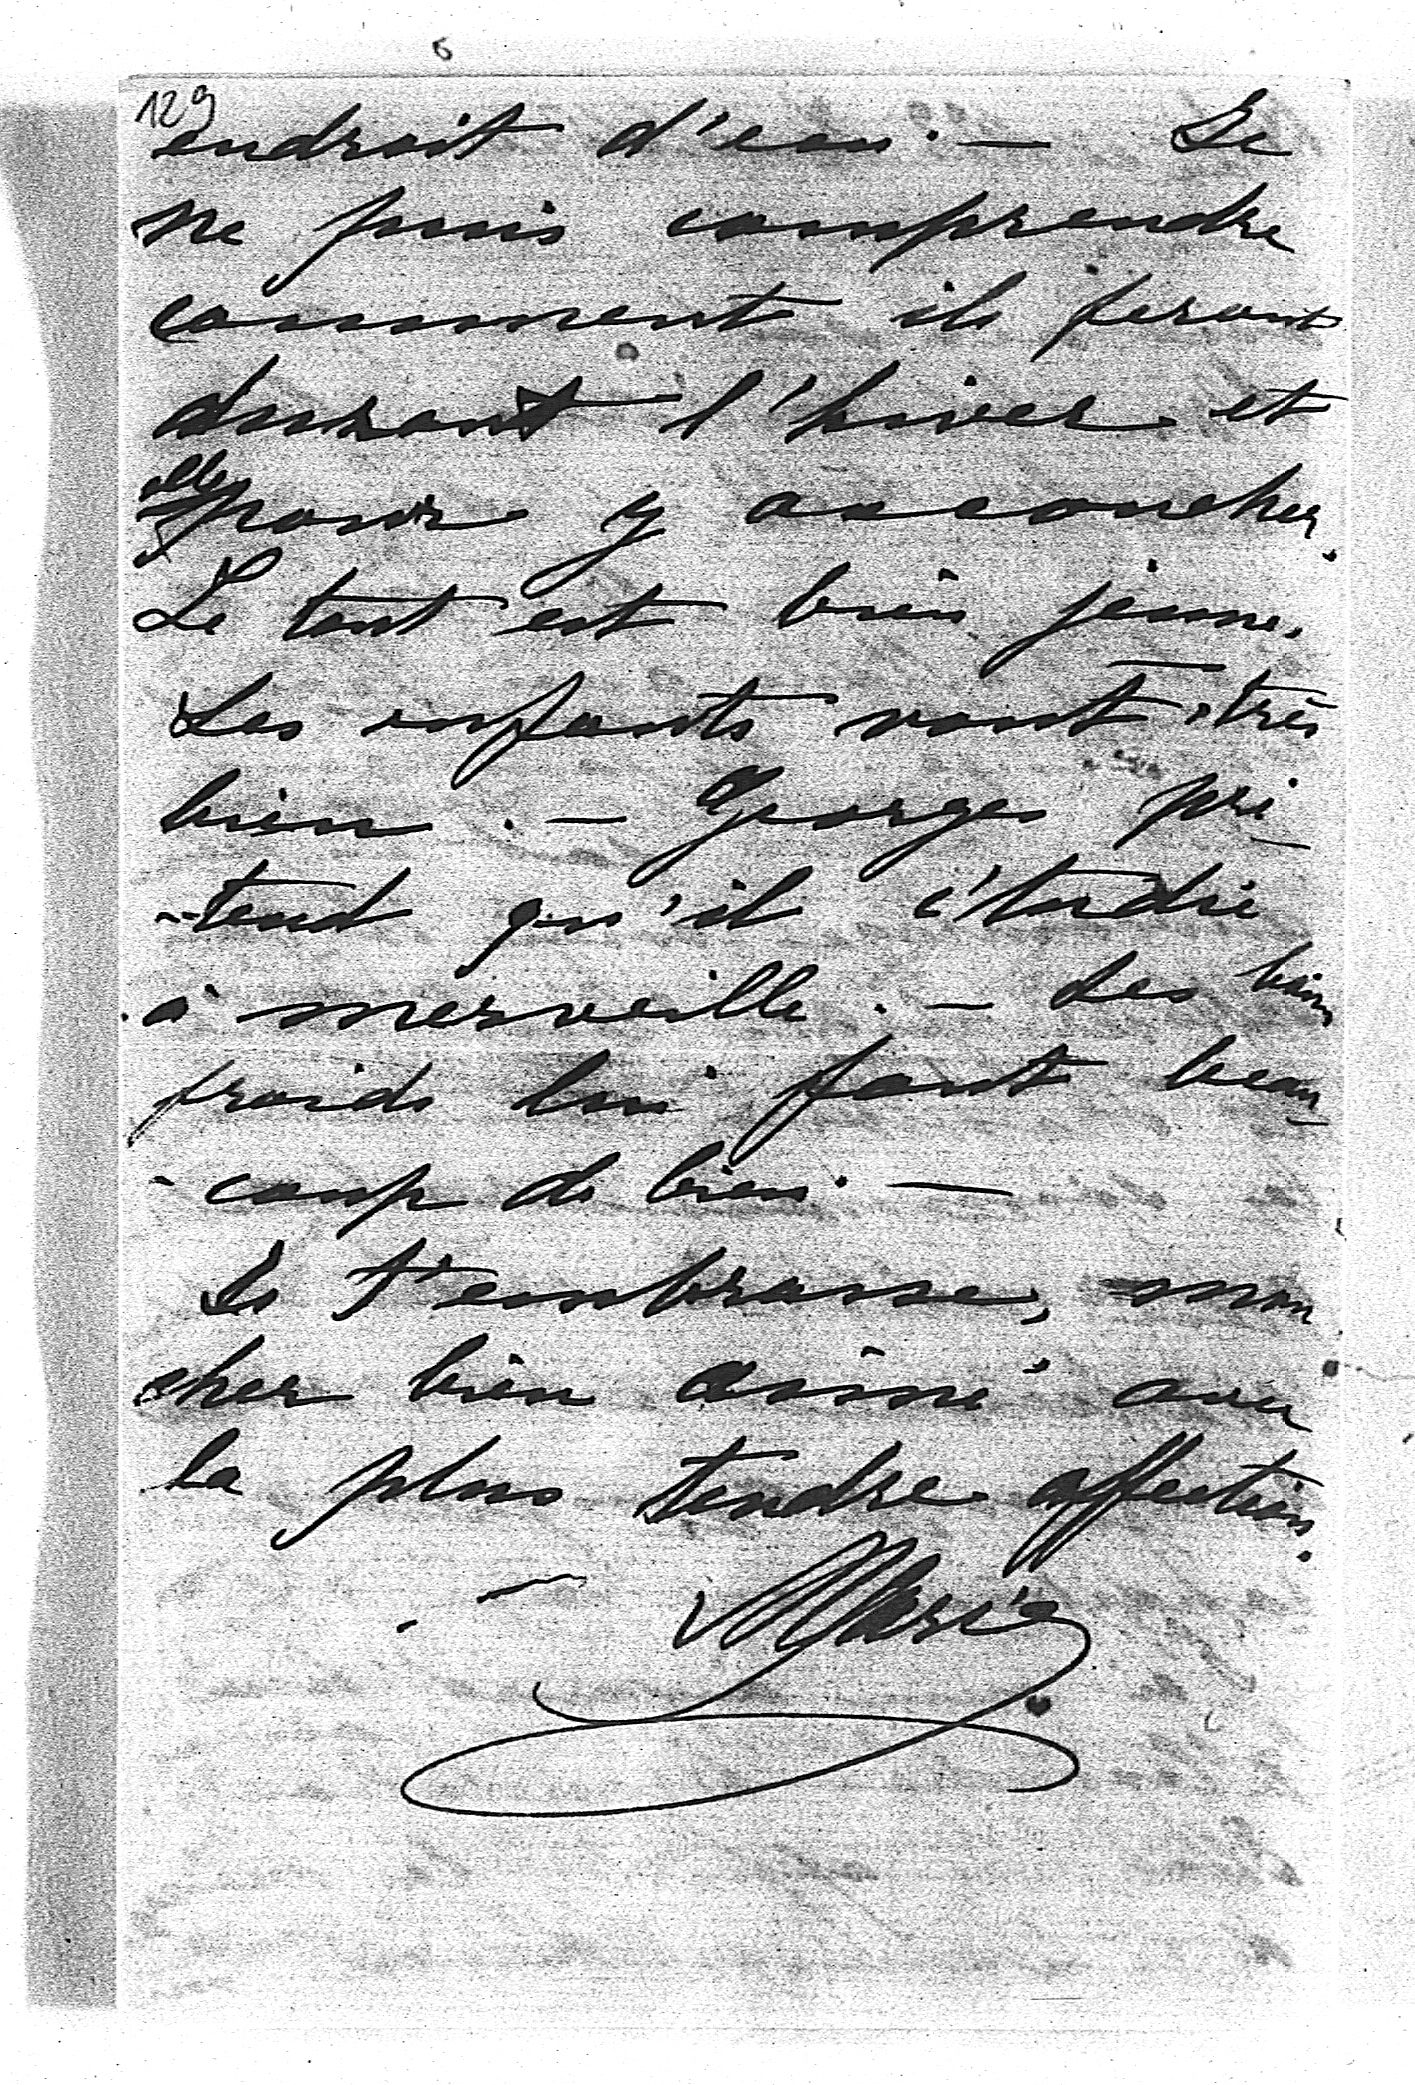 129
endroit d'eau. — Je
ne puis comprendre
comment ils feront
durant l'hiver et
elle
pour y accoucher.
Le tout est bien jeune.
Les enfants vont très
bien. — Georges pré
-tend qu'il étudie
à merveille. — Les bains
froids lui font beau
-coup de bien. —
Je t'embrasse, mon
cher bien aimé avec
la plus tendre affection.
Marie